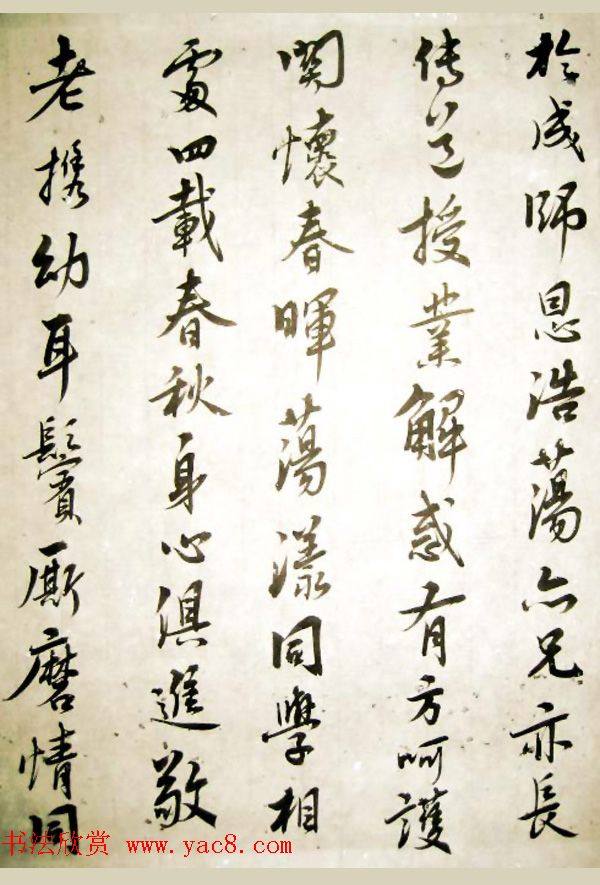 於成師恩浩蕩亦兄亦長
傳道授業解惑有方呵護
關懷春暉蕩漾同學相
處四載春秋身心俱進敬
老攜幼耳鬢厮磨情同
书法欣赏 www.yac8.com